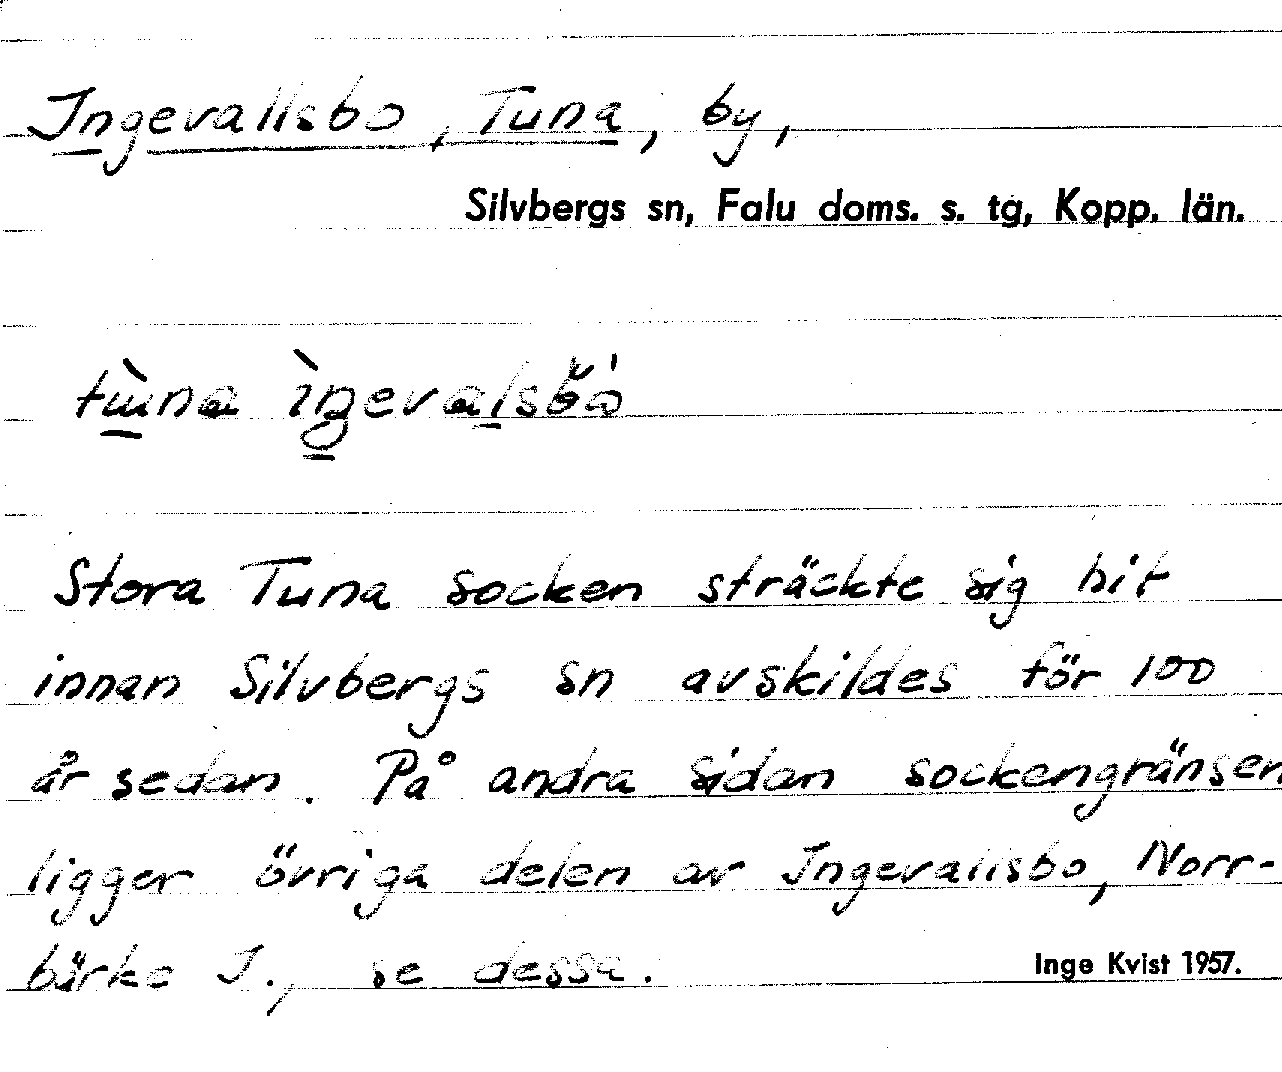 Ingevallsbo, Tuna, by,
Silvbergs sn, Falu doms. s. tg, Kopp. län.
Stora Tuna socken sträckte sig hit
innan Silvbergs sn avskildes för 100
år sedan. På andra sidan sockengränsen
ligger övriga delen av Ingevallsbo, Norr-
bärke I., se dessa.
Inge Kvist 1957.